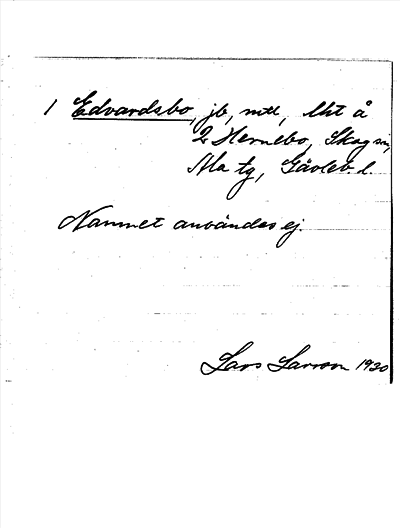 1 Edvardsbo, jb, mtl, lht å
2 Hernebo, Skog sn,
Ala tg, Gävleb l.
Namnet användes ej.
Lars Larsson 1930